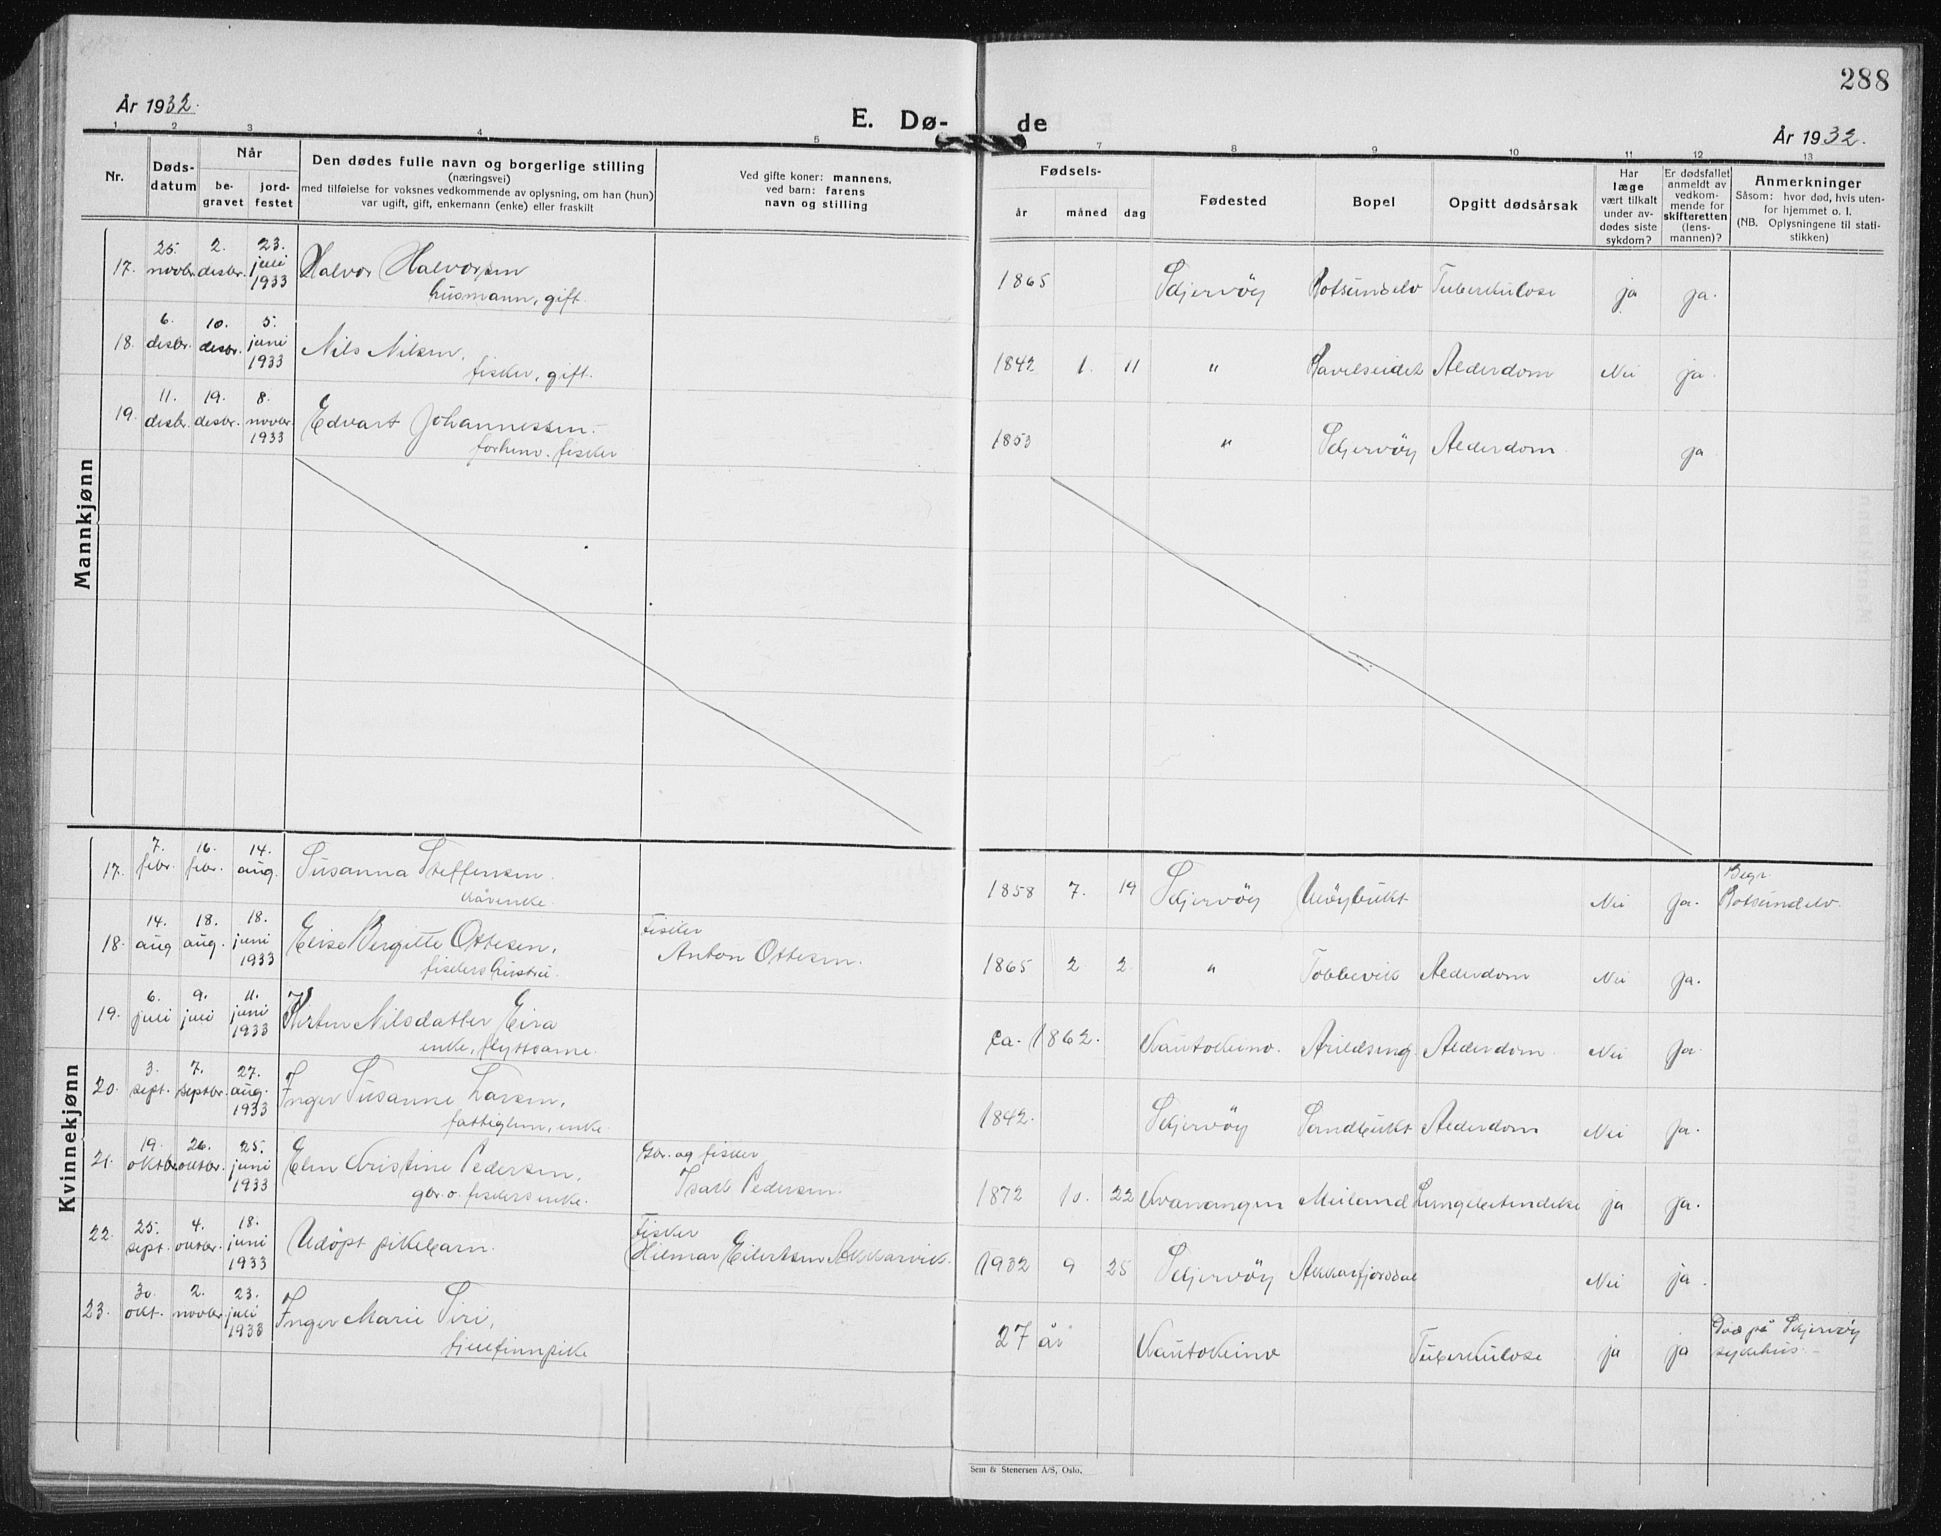 288
År 1932.
E. Dø- de
År 1932.
1 2 3 4 5 7 8 9 10 11 12 13
Nr.
Døds-
datum
Når
be-
gravet
jord-
festet
Den dødes fulle navn og borgerlige stilling
(næringsvei)
med tilføielse for voksnes vedkommende av oplysning, om han (hun)
var ugift, gift, enkemann (enke) eller fraskilt
Ved gifte koner: mannens,
ved barn: farens
navn og stilling
Fødsels-
år måned dag
Fødested
Bopel
Opgitt dødsårsak
Har
læge
vært tilkalt
under av-
dødes siste
sykdom?
Er dødsfallet
anmeldt av
vedkom-
mende for
skifteretten
(lens-
mannen)?
Anmerkninger
Såsom: hvor død, hvis uten-
for hjemmet o. l.
(NB. Oplysningene til stati-
stikken)
Mannkjønn
17. 25. novbr. 2. desbr. 23. juli 1933 Halvor Halvorsen 1865 Skjervöy Rotsundelv Tuberkulose ja ja.
husmann, gift.
18. 6. desbr. 10. desbr. 5. juni 1933 Nils Nilsen, 1842 1. 11 " Ravelseidet Alderdom Nei ja.
fisker, gift.
19. 11. desbr. 19. desbr. 8. novbr. 1933 Edvart Johannessen. 1853 " Skjervöy Alderdom. ja
forhenv. fisker
Kvinnekjønn
17. 7. febr. 16. febr. 14. aug. Susanna Steffensen. 1858 7. 19 Skjervöy Uöybukt Nei ja. Begr. Rotsundelv.
18. 14. aug 18. aug. 18. juni 1933 Elise Bergitte Ottesen, Fisker Anton Ottesen. 1865 2. 2. " Tobbevik Alderdom Nei ja.
fiskers hustru.
19. 6. juli 9. juli 11. juni 1933 Kirsten Nilsdatter Eira ca. 1862. Kautokeino. Alderdom. Nei ja.
enke, flyttsame.
20. 3. sept. 7. septbr. 27. aug. 1933 Inger Susanne Larsen, 1842. Skjervöy Sandbukt Alderdom Nei ja.
fattiglem, enke.
21. 19. oktbr. 26. oktbr. 25. juni 1933 Elen Kristine Pedersen, Gbr. og fisker Isak Pedersen. 1872 10. 22 Kvænangen Meiland Lungebetendelse ja ja.
gbr. o. fiskers enke.
22. 25. sept. 4. oktbr. 18. juni 1933 Udöpt pikebarn. Fisker Hilmar Eilertsen Akkarvik. 1932 9 25 Skjervöy Akkarfjorddal Nei ja.
23. 30. okt. 2. novbr. 23. juli 1933 Inger Marie Siri, 27 år Kautokeino Tuberkulose ja ja Död på Skjervöy sykehus.
fjellfinnpike
Sem & Stenersen A/S, Oslo.